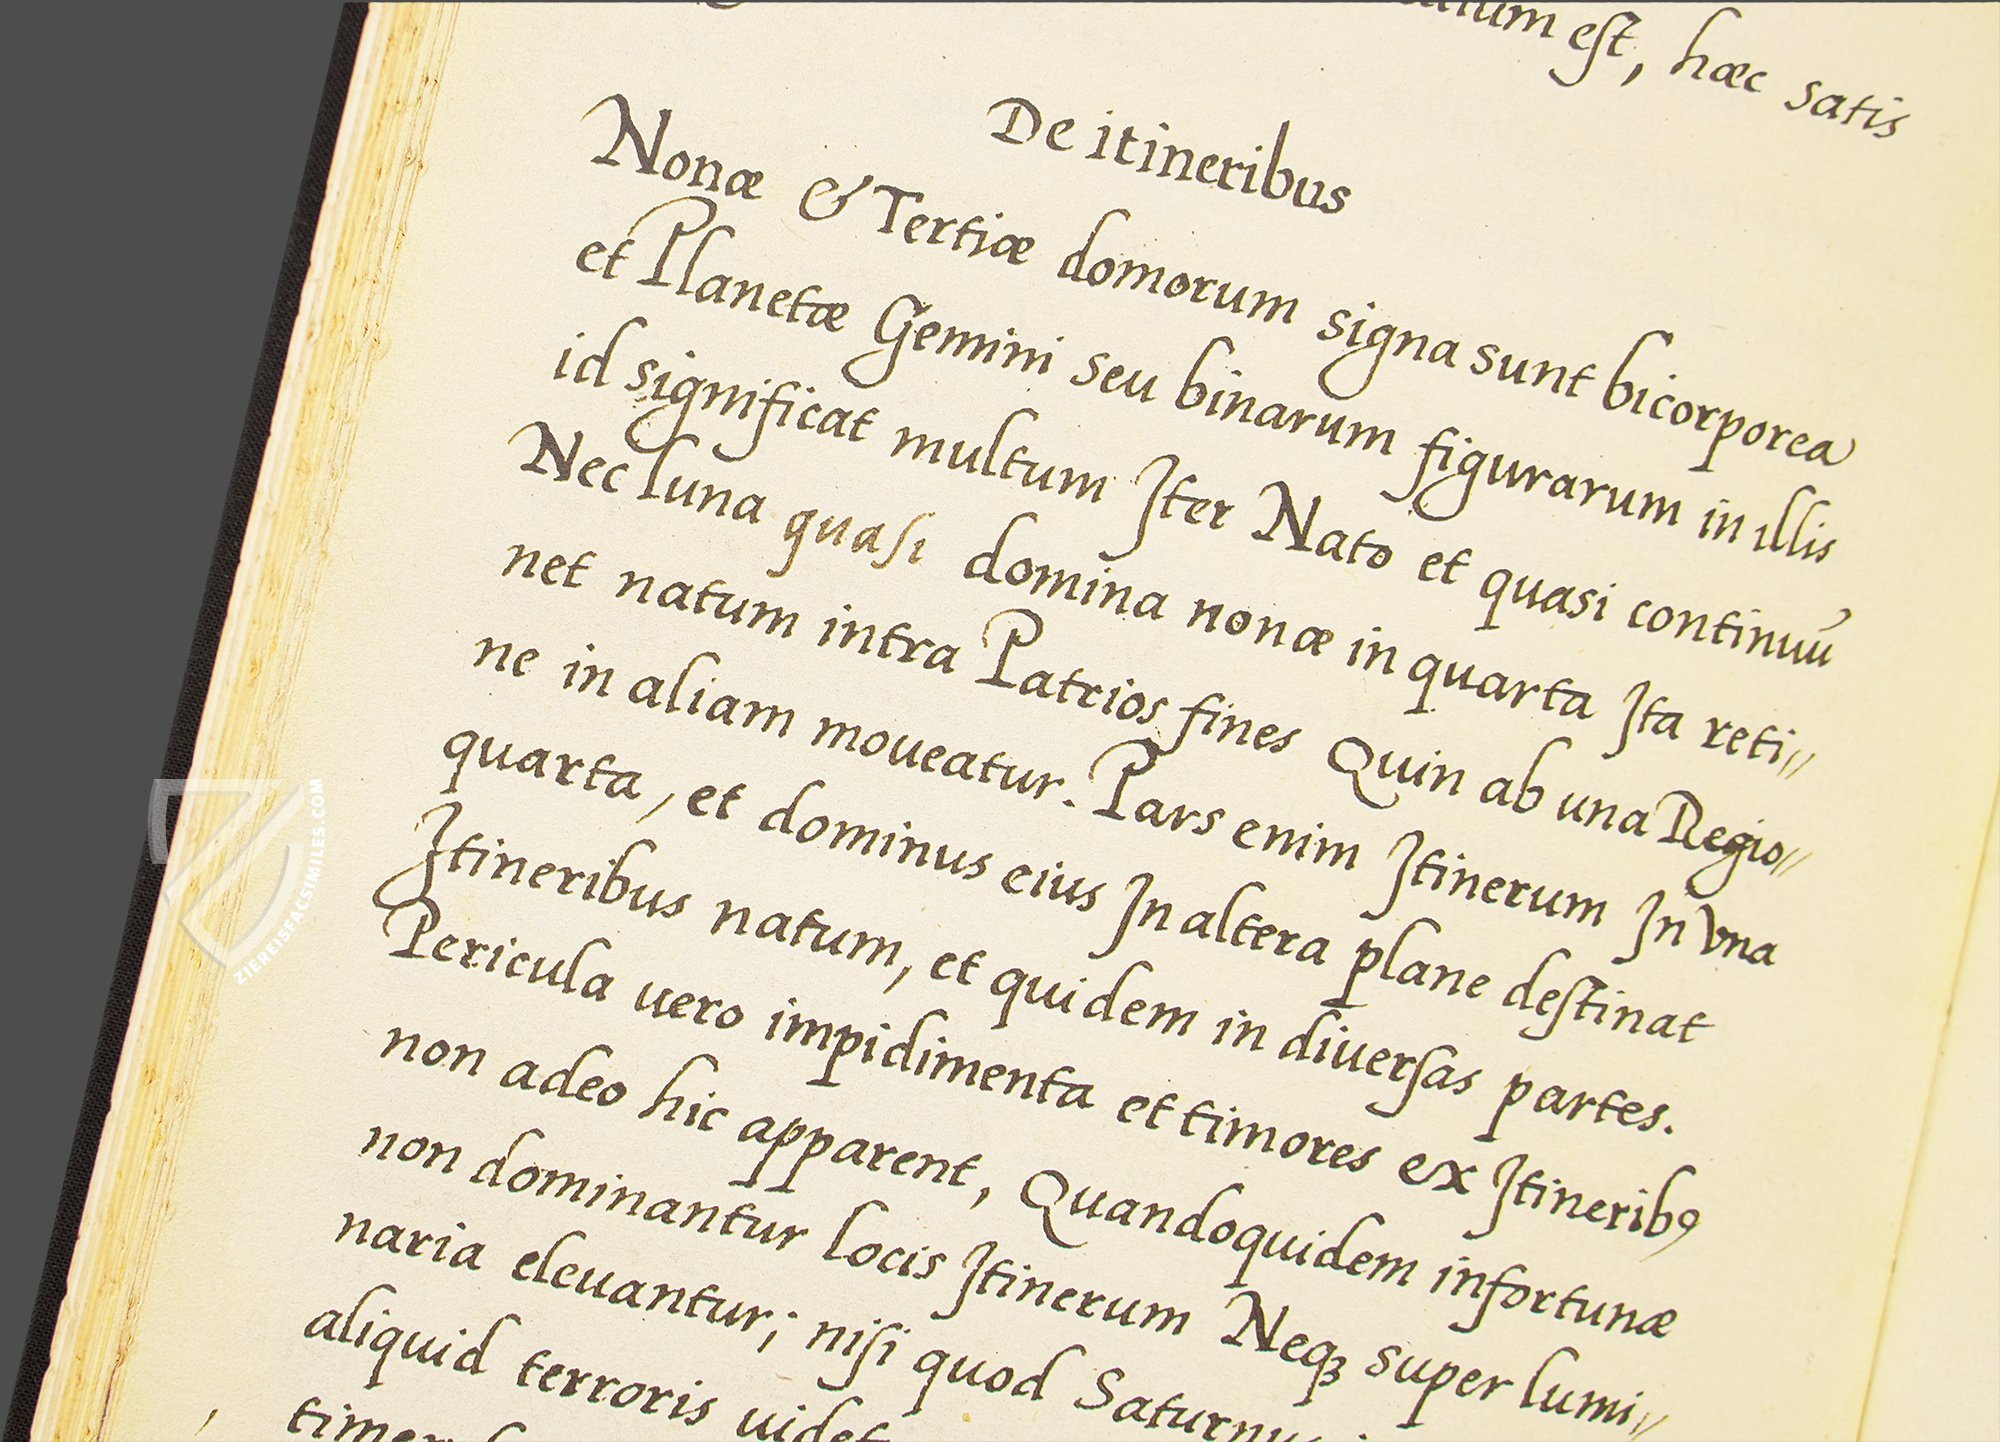 est, hæc satis
De itineribus
Nonæ & Tertiæ domorum signa sunt bicorporea
et Planetæ Gemini seu binarum figurarum in illis
id significat multum Iter Nato et quasi continuũ
Nec luna quasi domina nonæ in quarta Ita reti//
net natum intra Patrios fines Quin ab una Regio//
ne in aliam moueatur. Pars enim Itinerum In vna
quarta, et dominus eius In altera plane destinat
Itineribus natum, et quidem in diuersas partes.
Pericula uero impidimenta et timores ex Itinerib9
non adeo hic apparent, Quandoquidem infortunæ
non dominantur locis Itinerum Neqꝫ super lumi//
naria eleuantur; nisi quod Saturnu
aliquid terroris uidet
ZIEREISFACSIMILES.COM